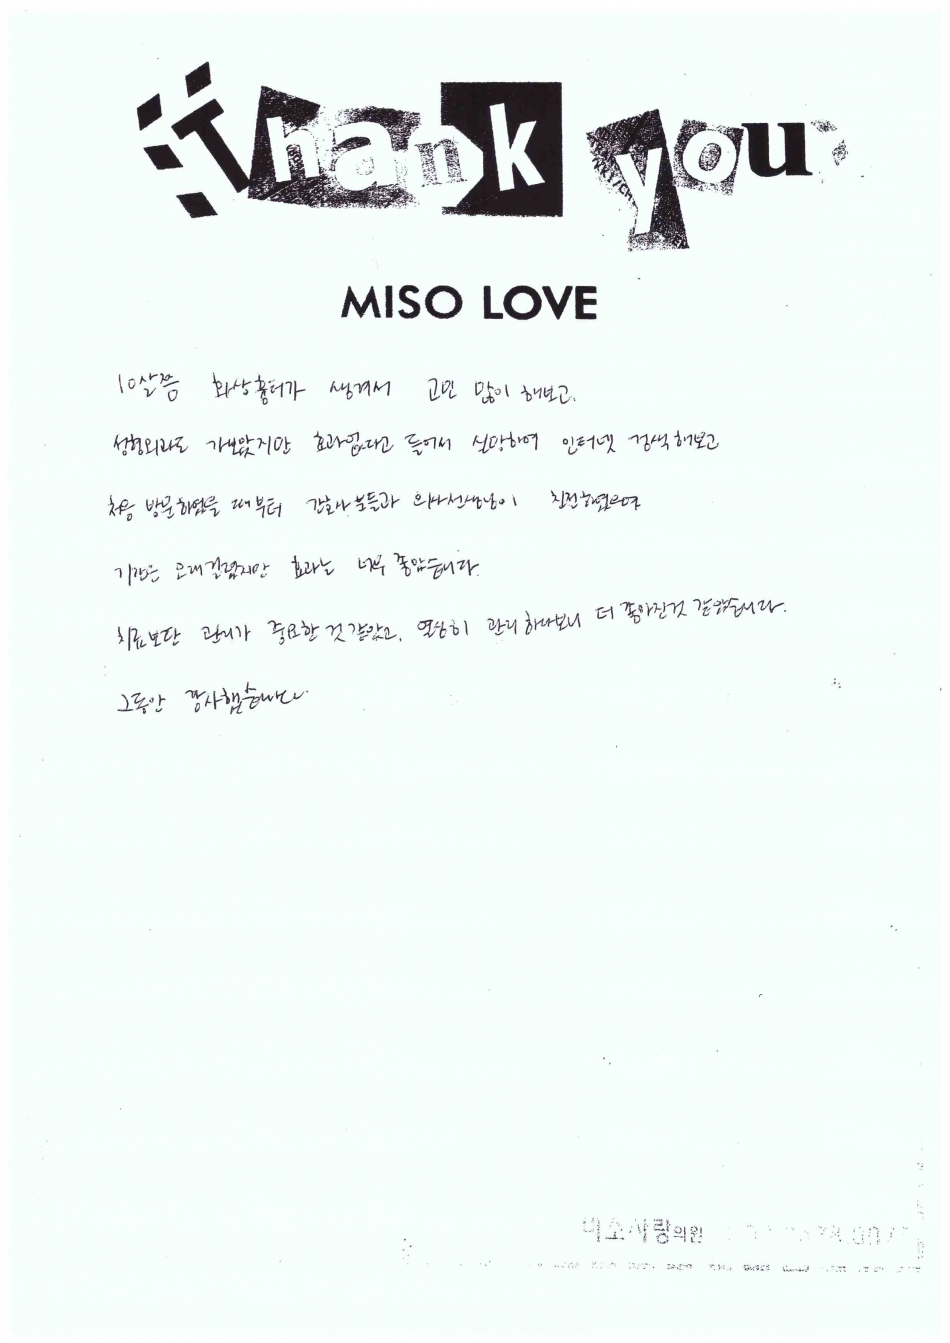 Thank you
MISO LOVE
10살쯤 화상흉터가 생겨서 고민 많이 해보고,
성형외과도 가보았지만 효과없다고 들어서 실망하여 인터넷 검색해보고
처음 방문하였을 때부터 간호사분들과 의사선생님이 친절하였으며
기간은 오래걸렸지만 효과는 너무 좋았습니다.
치료보단 관리가 중요한 것 같았고, 열심히 관리하다보니 더 좋아진것 같았습니다.
그동안 감사했습니다
미소사랑의원